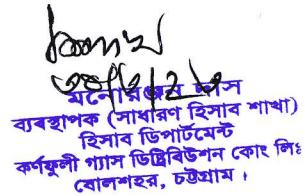 মনোরঞ্জন দাস
ব্যবস্থাপক (সাধারণ হিসাব শাখা)
হিসাব ডিপার্টমেন্ট
কর্ণফুলী গ্যাস ডিষ্ট্রিবিউশন কোং লিঃ
ষোলশহর, চট্টগ্রাম।